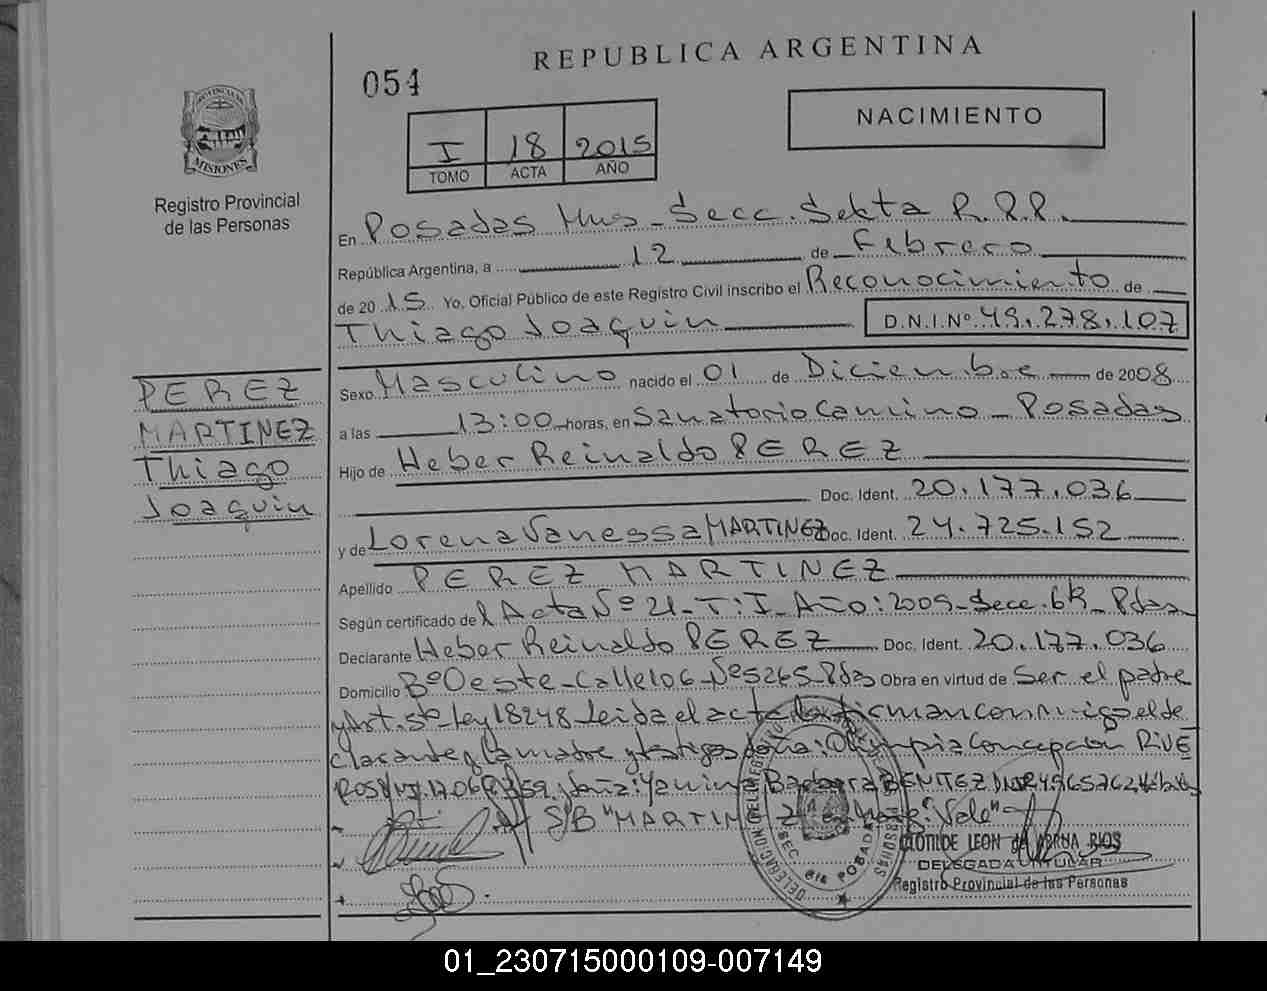 REPUBLICA ARGENTINA
054
NACIMIENTO
I 18 2015
TOMO ACTA AÑO
PROVINCIA DE
MISIONES
Registro Provincial
de las Personas
En Posadas Mns - Secc. Sexta R.P.P.
República Argentina, a 12 de Febrero
de 2015 Yo, Oficial Público de este Registro Civil inscribo el Reconocimiento de
Thiago Joaquin D.N.I.Nº 49.278.107
PEREZ
MARTINEZ
Thiago
Joaquin
Sexo Masculino nacido el 01 de Diciembre de 2008
a las 13:00 horas, en Sanatorio Camino - Posadas
Hijo de Heber Reinaldo PEREZ
Doc. Ident. 20.177.036
y de Lorena Vanessa MARTINEZ Doc. Ident. 24.725.152
Apellido PEREZ MARTINEZ
Según certificado de l Acta Nº 21 - T: I - Año: 2009 - Secc. 6ta - Pdas
Declarante Heber Reinaldo PEREZ Doc. Ident. 20.177.036
Domicilio Bº Oeste - Calle 106 - Nº 5265 - Pdas Obra en virtud de Ser el padre
y Art. 5to Ley 18248 - Leida el acta la firman conmigo el de
clarante y la madre y testigos doña: Olympia Concepción RIVE
ROS doña: Yanina Barbara BENITEZ
S/B "MARTINEZ" "Vale"
CLOTILDE LEON de ARRUA RIOS
DELEGADA TITULAR
Registro Provincial de las Personas
SEC. 6ta POSADAS
01_230715000109-007149